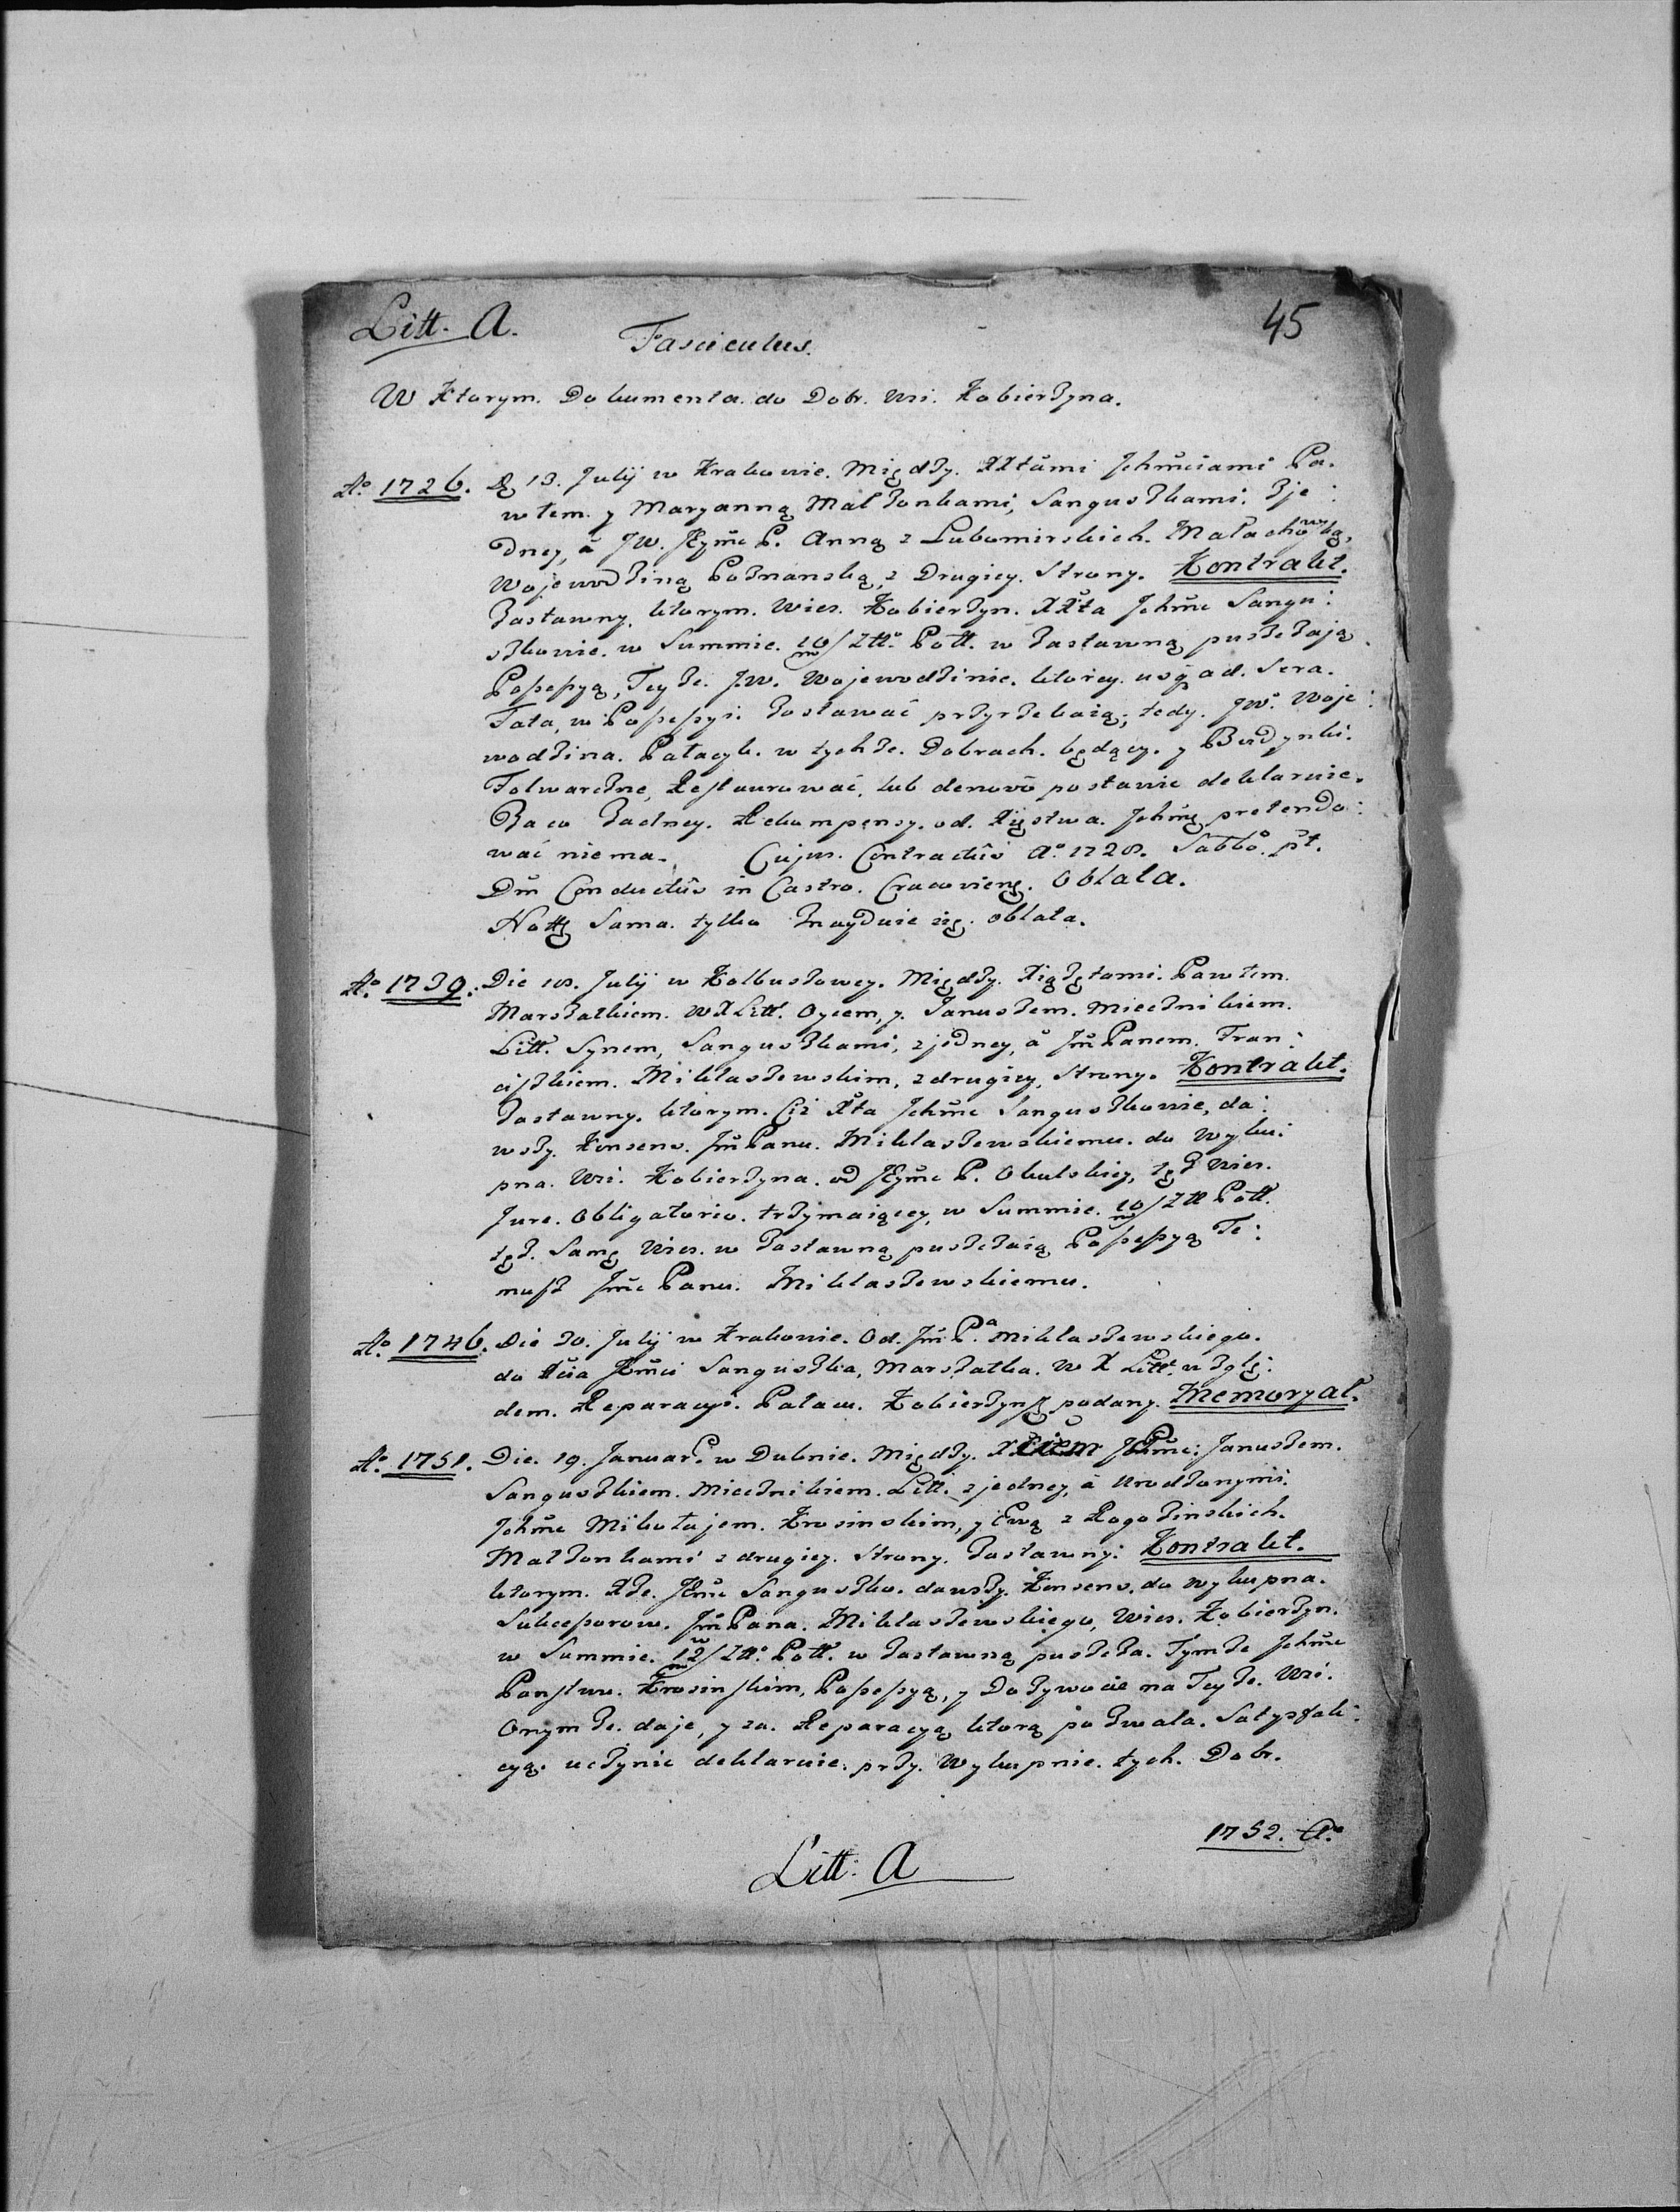 Litt. A.
45
Fasciculus.
W Ktorym. Dokumenta do Dobr. Wsi. Kobierżyna.
Aº 1726. D. 13. Julij w Krakowie. Między. XXtami Jchmciami Pa-
włem. y Maryanną Małżonkami, Sanguszkami. zje:
dney, á JW. JEymc P. Anną z Lubomirskich. Małachowską,
Wojewodziną Poznanską, z Drugiey. Strony. Kontrakt.
Zastawny, ktorym. Wies. Kobierżyn. XXta Jchmc Sangu:
szkowie. w Summie. 10/m Ztt. Poll. w zastawną puszczają
Possessyą, Teyże. J.W. Wojewodzinie. ktorey. usq. ad. Sera.
Fata, w Possessyi. zostawać przyrzekaią; tedy. JW. Woje:
wodzina. Pałacyk. w tychże. Dobrach. będący. y Budynki.
Folwarczne, Restaurować, lub denovo postawic deklaruie.
Za co żadney. Rekompensy. od. Xięstwa. Jchmc pretendo:
wać niema. Cujus. Contractûs Aº 1728. Sabbo. pt.
Dm Conductûs in Castro. Cracovien. Oblata.
Notta Sama. tylko znayduie się. oblata.
Aº 1739. Die 18. Julij w Kolbuszowey. Między. Xiążętami. Pawłem.
Marszałkiem. WXLitt. Oycem, y. Januszem. Miecznikiem.
Litt. Synem, Sanguszkami, zjedney, á Jm Panem. Fran:
ciszkiem. Miklaszewskim, zdrugiey, Strony. Kontrakt.
Zastawny. ktorym. Ciż Xta Jchmc Sanguszkowie, da:
wszy. Konsens. Jm Panu. Miklaszewskiemu. do Wyku:
pna. Wsi. Kobierżyna. od JEymc P. Okulskiey, tęż Wies.
Jure. Obligatorio. trzymaiącey, w Summie. 10/m Ztt Poll.
tęż. Samę Wies. w Zastawną puszczaią Possessyą Te:
muż Jmc Panu. Miklaszewskiemu.
Aº 1746. Die 30. Julij w Krakowie. Od. Jm Pa Miklaszewskiego.
do Xcia Jmci Sanguszka, Marszałka. W X Litt. wzglę:
dem. Reparacyi. Pałacu. Kobierżynsk. podany. Memoryał.
Aº 1751. Die. 19. Januar. w Dubnie. Między. XXciem JOmc: Januszem.
Sanguszkiem. Miecznikiem. Litt. zjedney, á Urodzonymi.
Jchmc Mikołajem. Krosinskim, y Ewą z Rogozinskich.
Małżonkami z drugiey. Strony. Zastawny: Kontrakt.
ktorym. Xże. Jmc Sanguszko. dawszy. Konsens. do wykupna.
Sukcessorow. Jm Pana. Miklaszewskiego, Wies. Kobierżyn.
w Summie. 12/m Ztt. Poll. w zastawną puszcza. Tymże Jchmc
Panstwu. Krosinskim, Possessyą, y Dożywocie na Teyże. Wsi.
Onymże. daje, y za. Reparacyą ktorą pozwala. Satysfak:
cyą. uczynic deklaruie. przy. Wykupnie. tych. Dobr.
1752. Aº
Litt: A